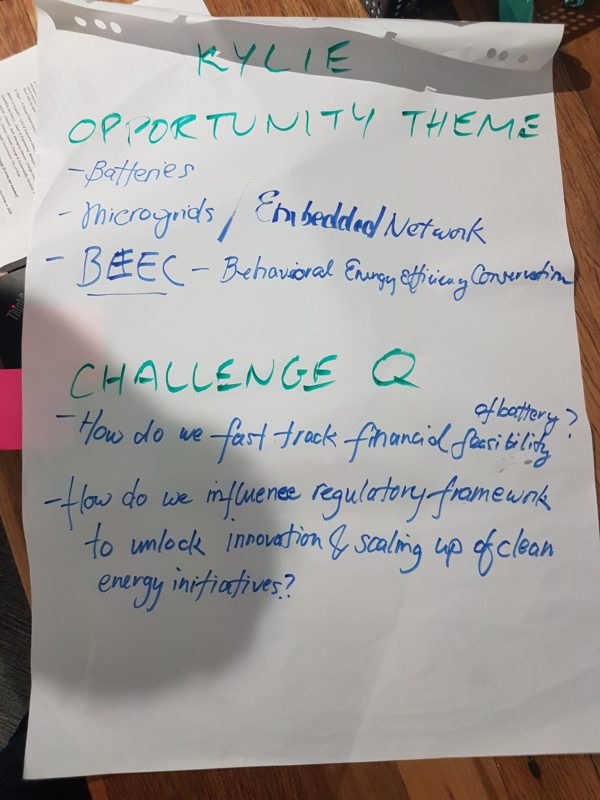 KYLIE
OPPORTUNITY THEME
- Batteries
- Microgrids / Embedded Network
- BEEC - Behavioral Energy Efficiency Conservation
CHALLENGE Q
- How do we fast track financial feasibility of battery?
- How do we influence regulatory framework
to unlock innovation & scaling up of clean
energy initiatives?